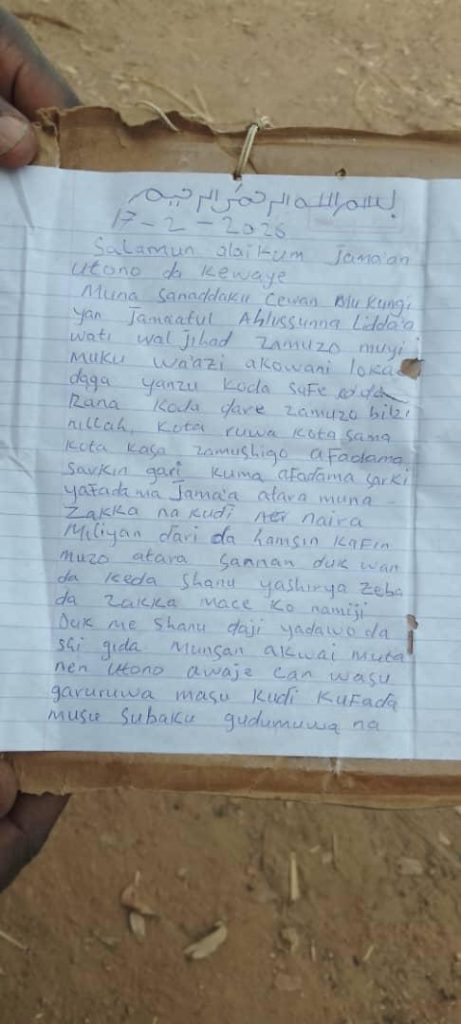 بسم الله الرحمن الرحيم
17-2-2026
Salamun alaikum Jama'an
Utono da kewaye
Muna sanaddaku cewan mu kungi
yan Jamaatul Ahlussunna Lidda'a
wati wal Jihad zamuzo muyi
muku wa'azi akowani loka
daga yanzu koda safe
Rana koda dare zamuzo bibi
nillah, kota ruwa kota sama
kota kasa zamushigo afadama
Sarkin gari kuma afadama sarki
yafada ma Jama'a atara muna
Zakka na kudi naira
Miliyan dari da hamsin kafin
muzo atara sannan duk wan
da keda shanu yashirya zeba
da zakka mace ko namiji
Duk me shanu daji yadawo da
shi gida munsan akwai muta
nen Utono awaje can wasu
garuruwa masu kudi kufada
musu subaku gudumuwa na